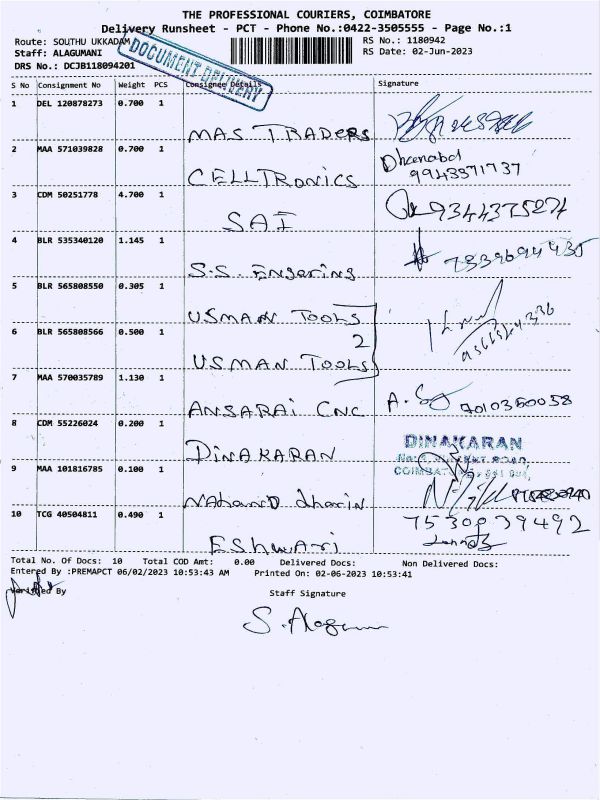 THE PROFESSIONAL COURIERS, COIMBATORE
Delivery Runsheet - PCT - Phone No.:0422-3505555 - Page No.:1
Route: SOUTHU UKKADAM RS No.: 1180942
Staff: ALAGUMANI RS Date: 02-Jun-2023
DRS No.: DCJB118094201
DOCUMENT DELIVERY
S No Consignment No Weight PCS Consignee Details Signature
1 DEL 120878273 0.700 1
MAS TRADERS
2 MAA 571039828 0.700 1
CELLTRONICS Dhanabal 9943371737
3 CDM 50251778 4.700 1
SAI 9344375274
4 BLR 535340120 1.145 1
S.S. Engering 7339694435
5 BLR 565808550 0.305 1
USMAN TOOLS
2
6 BLR 565808566 0.500 1
USMAN TOOLS
7 MAA 570035789 1.130 1
ANSARAI CNC A. 7010350058
8 CDM 55226024 0.200 1
DINAKARAN DINAKARAN
9 MAA 101816785 0.100 1
Mahamd dharin
10 TCG 40504811 0.490 1
Eshwari 7530839492
Total No. Of Docs: 10 Total COD Amt: 0.00 Delivered Docs: Non Delivered Docs:
Entered By :PREMAPCT 06/02/2023 10:53:43 AM Printed On: 02-06-2023 10:53:41
Verified By Staff Signature